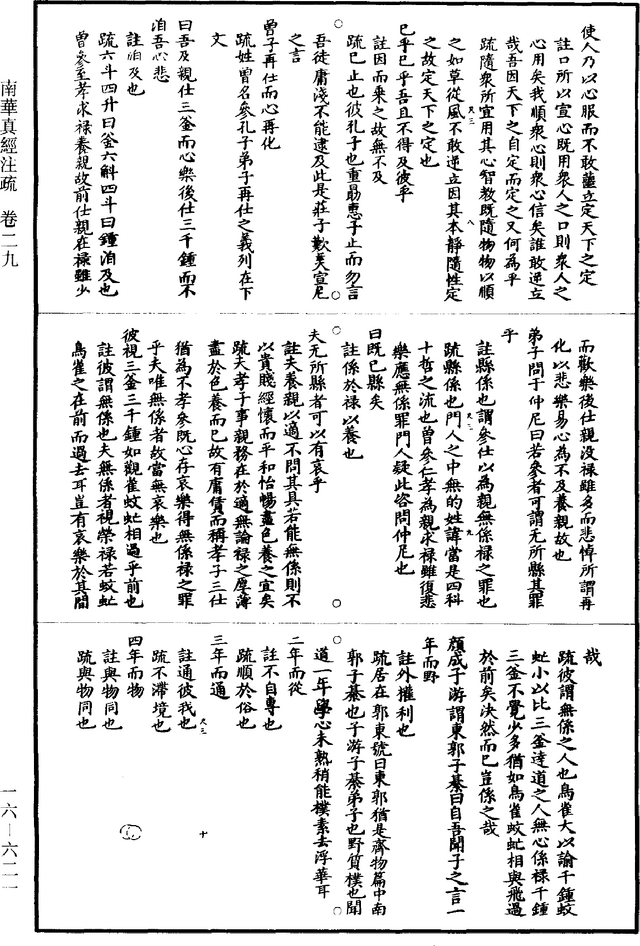 南華真經注疏　卷二九
使人乃以心服而不敢蘁立定天下之定
註口所以宣心既用衆人之口則衆人之
心用矣我順衆心則衆心信矣誰敢逆立
哉吾因天下之自定而定之又何為乎
疏隨衆所宜用其心智教既隨物物以順
之如草從風不敢逆立因其本靜隨性定
之故定天下之定也
已乎已乎吾且不得及彼乎
註因而乘之故無不及
疏已止也彼孔子也重勗惠子止而勿言
吾徒庸淺不能逮及此是莊子歎美宣尼
之言
曾子再仕而心再化
疏姓曾名參孔子弟子再仕之義列在下
文
曰吾及親仕三釜而心樂後仕三千鍾而不
洎吾心悲
註洎及也
疏六斗四升曰釜六斛四斗曰鍾洎及也
曾參至孝求禄養親故前仕親在禄雖少
而歡樂後仕親没禄雖多而悲悼所謂再
化以悲樂易心為不及養親故也
弟子問于仲尼曰若參者可謂无所縣其罪
乎
註縣係也謂參仕以為親無係禄之罪也
疏縣係也門人之中無的姓諱當是四科
十哲之流也曾參仁孝為親求禄雖復悲
樂應無係罪門人疑此咨問仲尼也
曰既已縣矣
註係於禄以養也
夫无所縣者可以有哀乎
註夫養親以適不問其具若能無係則不
以貴賤經懷而平和怡暢盡色養之宜矣
疏夫孝子事親務在於適無論禄之厚薄
盡於色養而已故有庸賃而稱孝子三仕
猶為不孝參既心存哀樂得無係禄之罪
乎夫唯無係者故當無哀樂也
彼視三釜三千鍾如觀雀蚊虻相過乎前也
註彼謂無係也夫無係者視榮禄若蚊虻
鳥雀之在前而過去耳豈有哀樂於其間
哉
疏彼謂無係之人也鳥雀大以諭千鍾蚊
虻小以比三釜達道之人無心係禄千鍾
三釜不覺少多猶如鳥雀蚊虻相與飛過
於前矣決然而已豈係之哉
顔成子游謂東郭子綦曰自吾聞子之言一
年而野
註外權利也
疏居在郭東號曰東郭猶是齊物篇中南
郭子綦也子游子綦弟子也野質樸也聞
道一年學心未熟稍能樸素去浮華耳
二年而從
註不自專也
疏順於俗也
三年而通
註通彼我也
疏不滯境也
四年而物
註與物同也
疏與物同也
十
一六—六二一